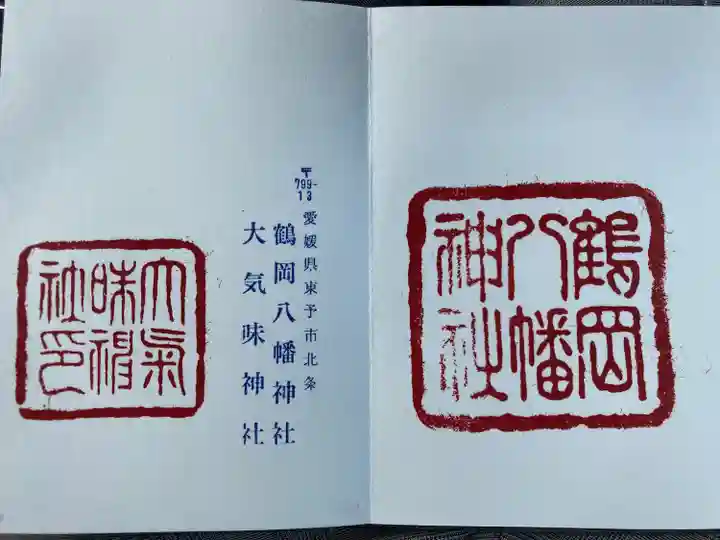 鶴岡
八幡
神社
〒799-13
愛媛県東予市北条
鶴岡八幡神社
大気味神社
大氣
味神
社印